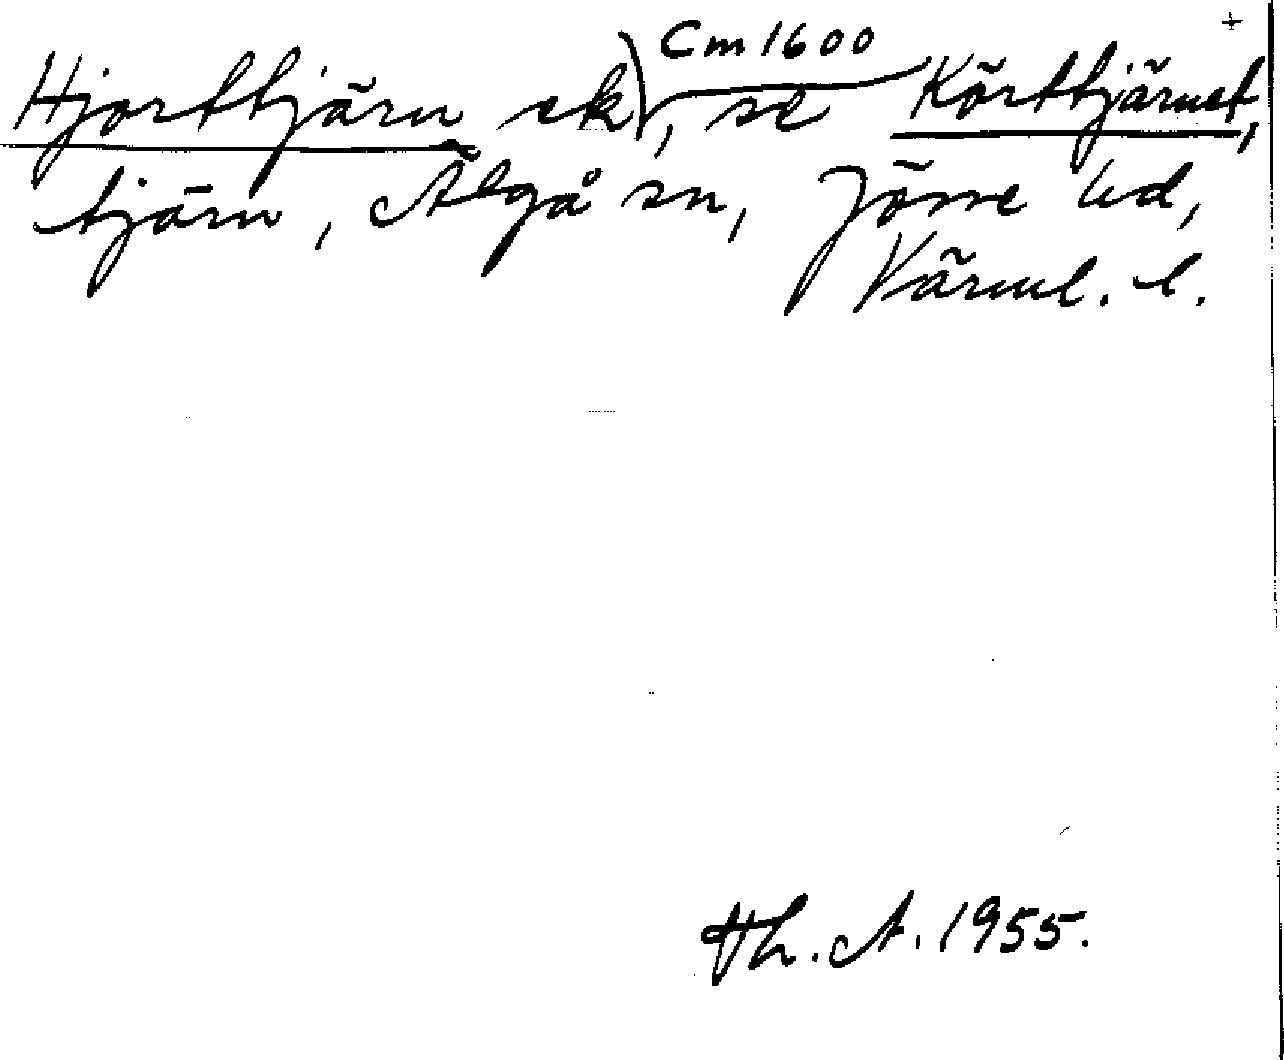 +
Cm 1600
Hjorttjärn ek, se Körttjärnet,
tjärn, Älgå sn, Jösse hd,
Värml. l.
Th. A. 1955.